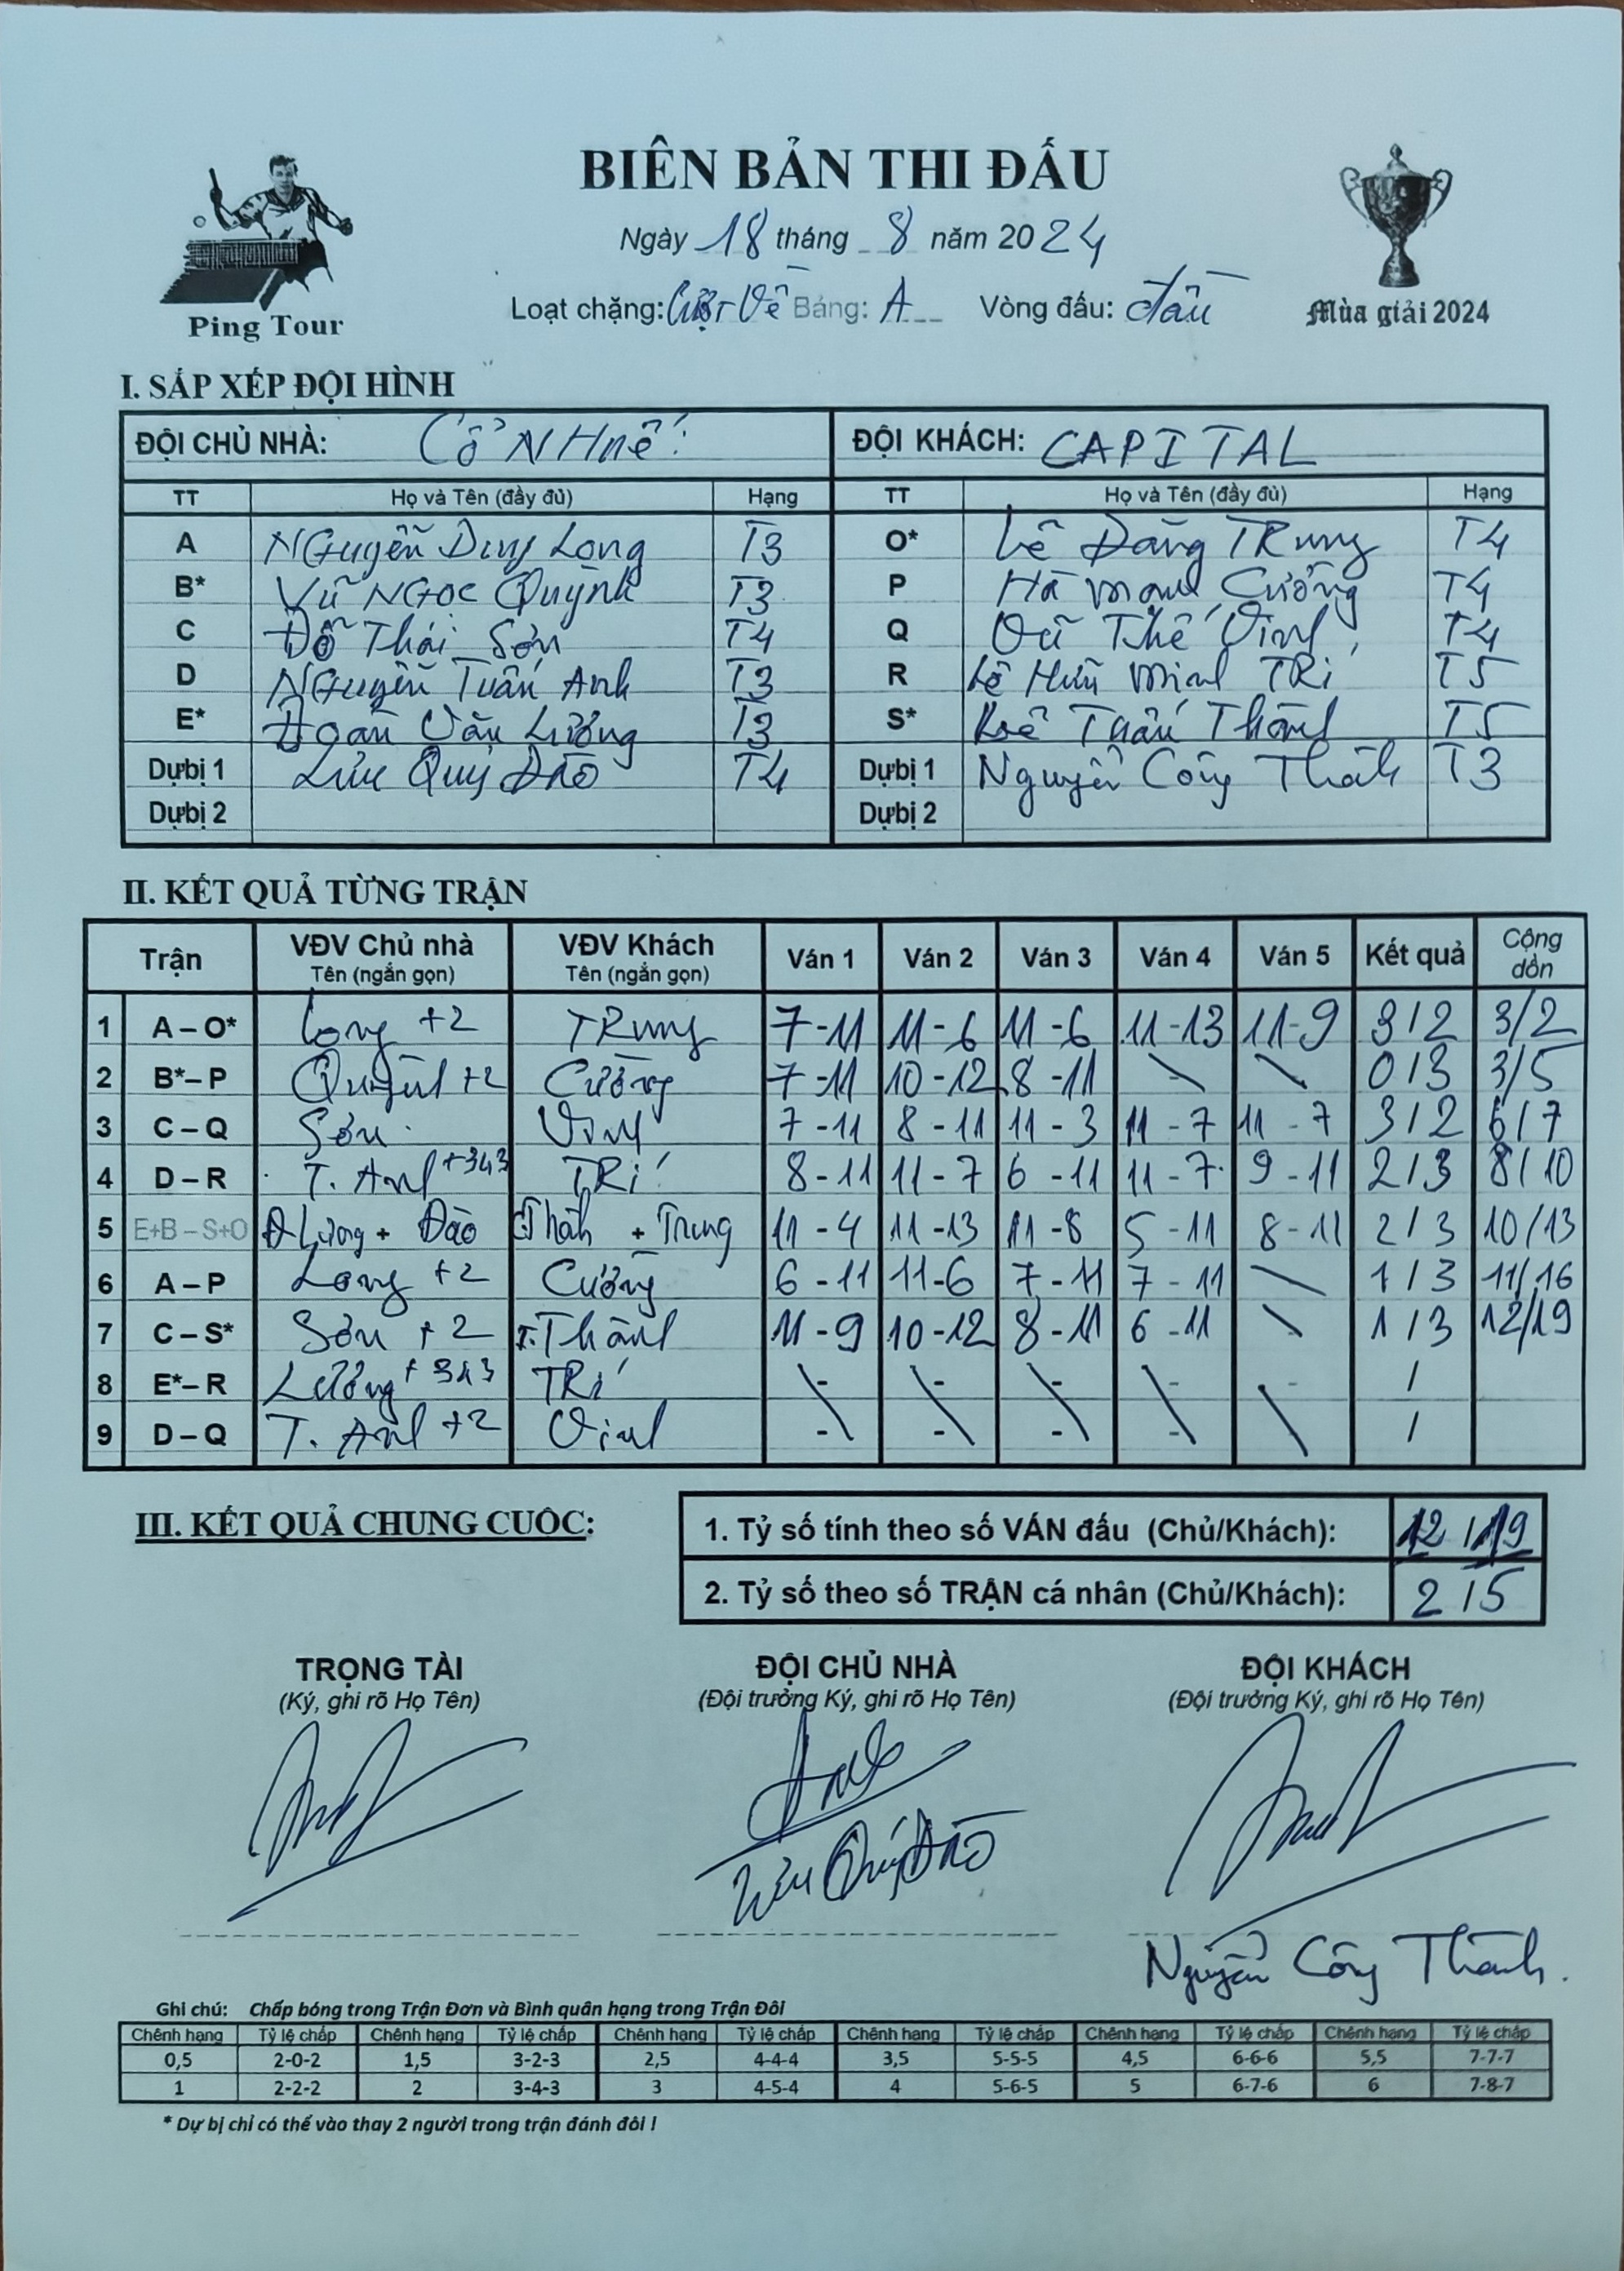 BIÊN BẢN THI ĐẤU
Ngày 18 tháng 8 năm 2024
Loạt chặng: Lượt Về Bảng: A Vòng đấu: đầu
Ping Tour
Mùa giải 2024
I. SẮP XẾP ĐỘI HÌNH
ĐỘI CHỦ NHÀ: Cổ NHuế ĐỘI KHÁCH: CAPITAL
TT Họ và Tên (đầy đủ) Hạng TT Họ và Tên (đầy đủ) Hạng
A NGuyễn Duy Long T3 O* Lê Đăng TRung T4
B* Vũ NGọc Quỳnh T3 P Hà Mạnh Cường T4
C Đỗ Thái Sơn T4 Q Vũ Thế Vinh T4
D NGuyễn Tuấn Anh T3 R Lê Hữu Minh TRí T5
E* Đoàn Văn Lương T3 S* Tuấn Thành T5
Dự bị 1 Lưu Quý Đào T4 Dự bị 1 Nguyễn Công Thành T3
Dự bị 2 Dự bị 2
II. KẾT QUẢ TỪNG TRẬN
Trận VĐV Chủ nhà Tên (ngắn gọn) VĐV Khách Tên (ngắn gọn) Ván 1 Ván 2 Ván 3 Ván 4 Ván 5 Kết quả Cộng dồn
1 A – O* Long +2 TRung 7-11 11-6 11-6 11-13 11-9 3/2 3/2
2 B* – P Quỳnh +2 Cường 7-11 10-12 8-11 - - 0/3 3/5
3 C – Q Sơn Vinh 7-11 8-11 11-3 11-7 11-7 3/2 6/7
4 D – R T. Anh +343 TRí 8-11 11-7 6-11 11-7 9-11 2/3 8/10
5 E+B – S+O Đ Lương + Đào C.Thành + Trung 11-4 11-13 11-8 5-11 8-11 2/3 10/13
6 A – P Long +2 Cường 6-11 11-6 7-11 7-11 1/3 11/16
7 C – S* Sơn +2 T.Thành 11-9 10-12 8-11 6-11 - 1/3 12/19
8 E* – R Lương +343 TRí - - - - - /
9 D – Q T. Anh +2 Vinh - - - - - /
III. KẾT QUẢ CHUNG CUỘC:
1. Tỷ số tính theo số VÁN đấu (Chủ/Khách): 12/19
2. Tỷ số theo số TRẬN cá nhân (Chủ/Khách): 2/5
TRỌNG TÀI ĐỘI CHỦ NHÀ ĐỘI KHÁCH
(Ký, ghi rõ Họ Tên) (Đội trưởng Ký, ghi rõ Họ Tên) (Đội trưởng Ký, ghi rõ Họ Tên)
Lưu Quý Đào
Nguyễn Công Thành.
Ghi chú: Chấp bóng trong Trận Đơn và Bình quân hạng trong Trận Đôi
Chênh hạng Tỷ lệ chấp Chênh hạng Tỷ lệ chấp Chênh hạng Tỷ lệ chấp Chênh hạng Tỷ lệ chấp Chênh hạng Tỷ lệ chấp Chênh hạng Tỷ lệ chấp
0,5 2-0-2 1,5 3-2-3 2,5 4-4-4 3,5 5-5-5 4,5 6-6-6 5,5 7-7-7
1 2-2-2 2 3-4-3 3 4-5-4 4 5-6-5 5 6-7-6 6 7-8-7
* Dự bị chỉ có thể vào thay 2 người trong trận đánh đôi !